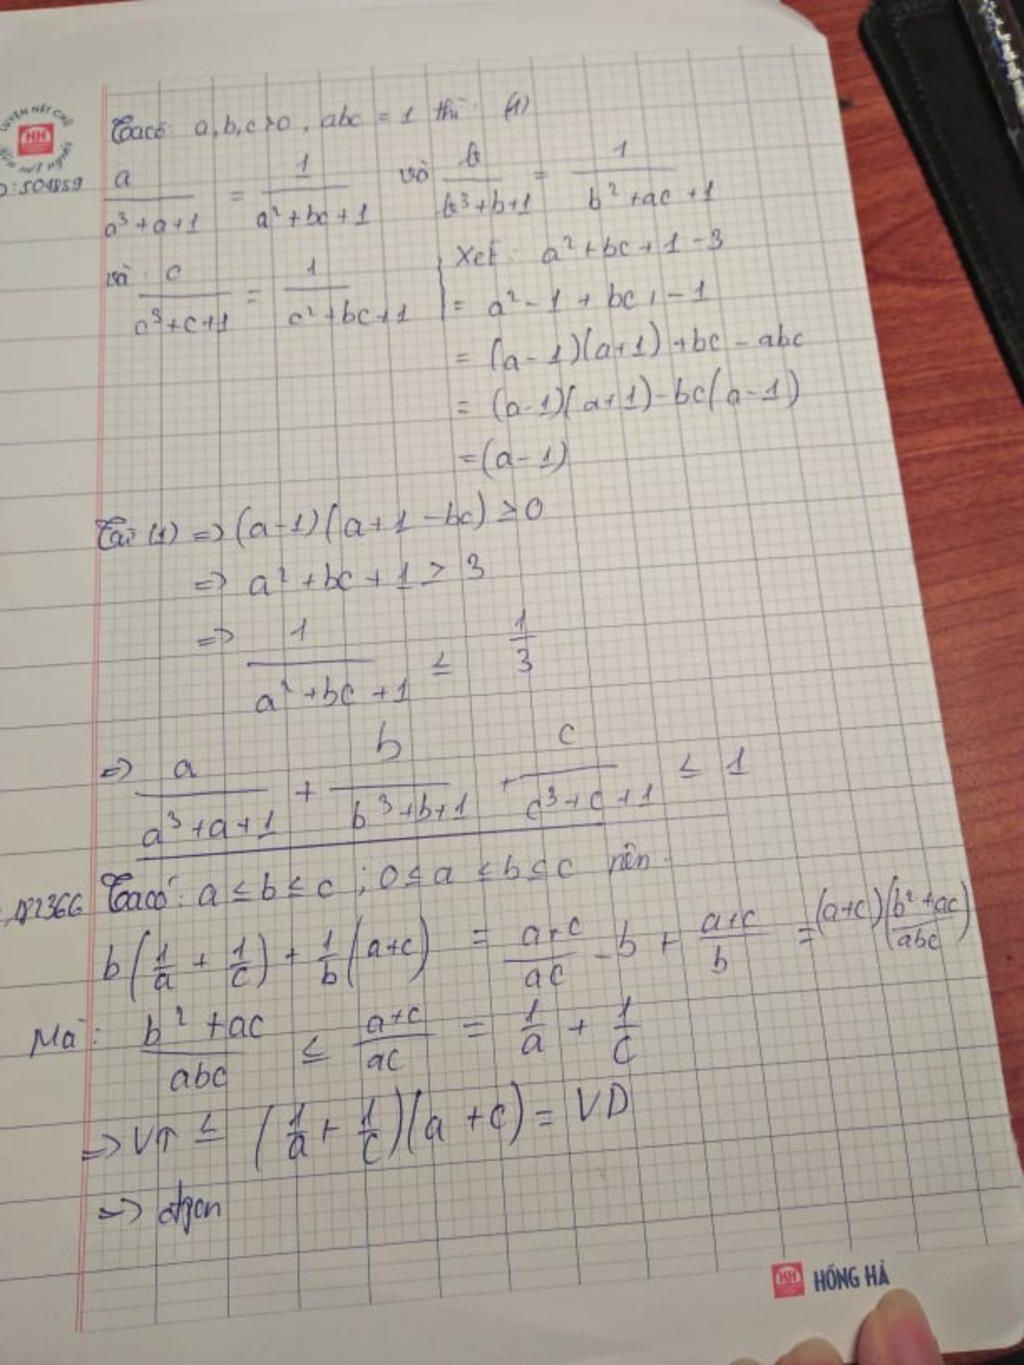 LUYỆN NÉT CHỮ
HH
RÈN NẾT NGƯỜI
D:504859
Ta có: a,b,c>0, abc = 1 thì: (1)
a/(a³+a+1) = 1/(a²+bc+1) và b/(b³+b+1) = 1/(b²+ac+1)
và: c/(c³+c+1) = 1/(c²+bc+1)
Xét: a²+bc+1-3
= a²-1+bc+-1
= (a-1)(a+1)+bc-abc
= (a-1)(a+1)-bc(a-1)
=(a-1)
Từ (1) => (a-1)(a+1-bc) ≥ 0
=> a²+bc+1 ≥ 3
=> 1/(a²+bc+1) ≤ 1/3
=> a/(a³+a+1) + b/(b³+b+1) + c/(c³+c+1) ≤ 1
Ta có: a ≤ b ≤ c ; 0 ≤ a ≤ b ≤ c nên
b(1/a + 1/c) + 1/b(a+c) = (a+c)/ac - b + (a+c)/b = (a+c)(b²+ac)/abc
Mà: (b²+ac)/abc ≤ (a+c)/ac = 1/a + 1/c
=> VT ≤ (1/a + 1/c)(a+c) = VD
=> đpcm
HH HỒNG HÀ